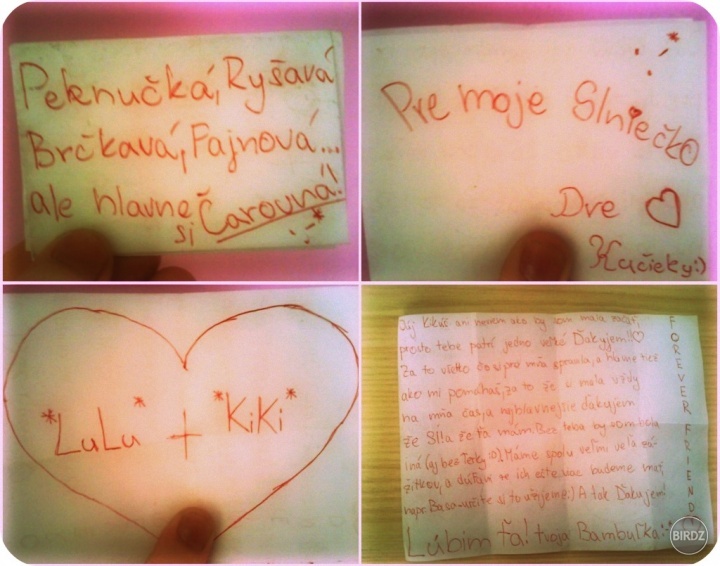 Peknučká, Ryšavá
Brčkavá, Fajnová...
ale hlavne
si Čarovná!
Pre moje Slniečko
Dve
Kačieky:)
*LuLu* + *KiKi*
Júj Kikuš ani neviem ako by som mala začať,
proste tebe patrí jedno veľké Ďakujem!!♡
Za to všetko čo pre mňa spravila, a hlavne tiež
ako mi pomáhaš, za to že si mala vždy
na mňa čas, a najhlavnejšie ďakujem
že SI! a že ťa mám. Bez teba by som bola
iná (aj bez Terky :D) Máme spolu veľmi veľa zá-
žitkov, a dúfam že ich ešte viac budeme mať
napr. Basa-určite si to užijeme:) A tak Ďakujem!
Ľúbim ťa! tvoja Bambuľka:*
FOREVER FRIEND
BIRDZ